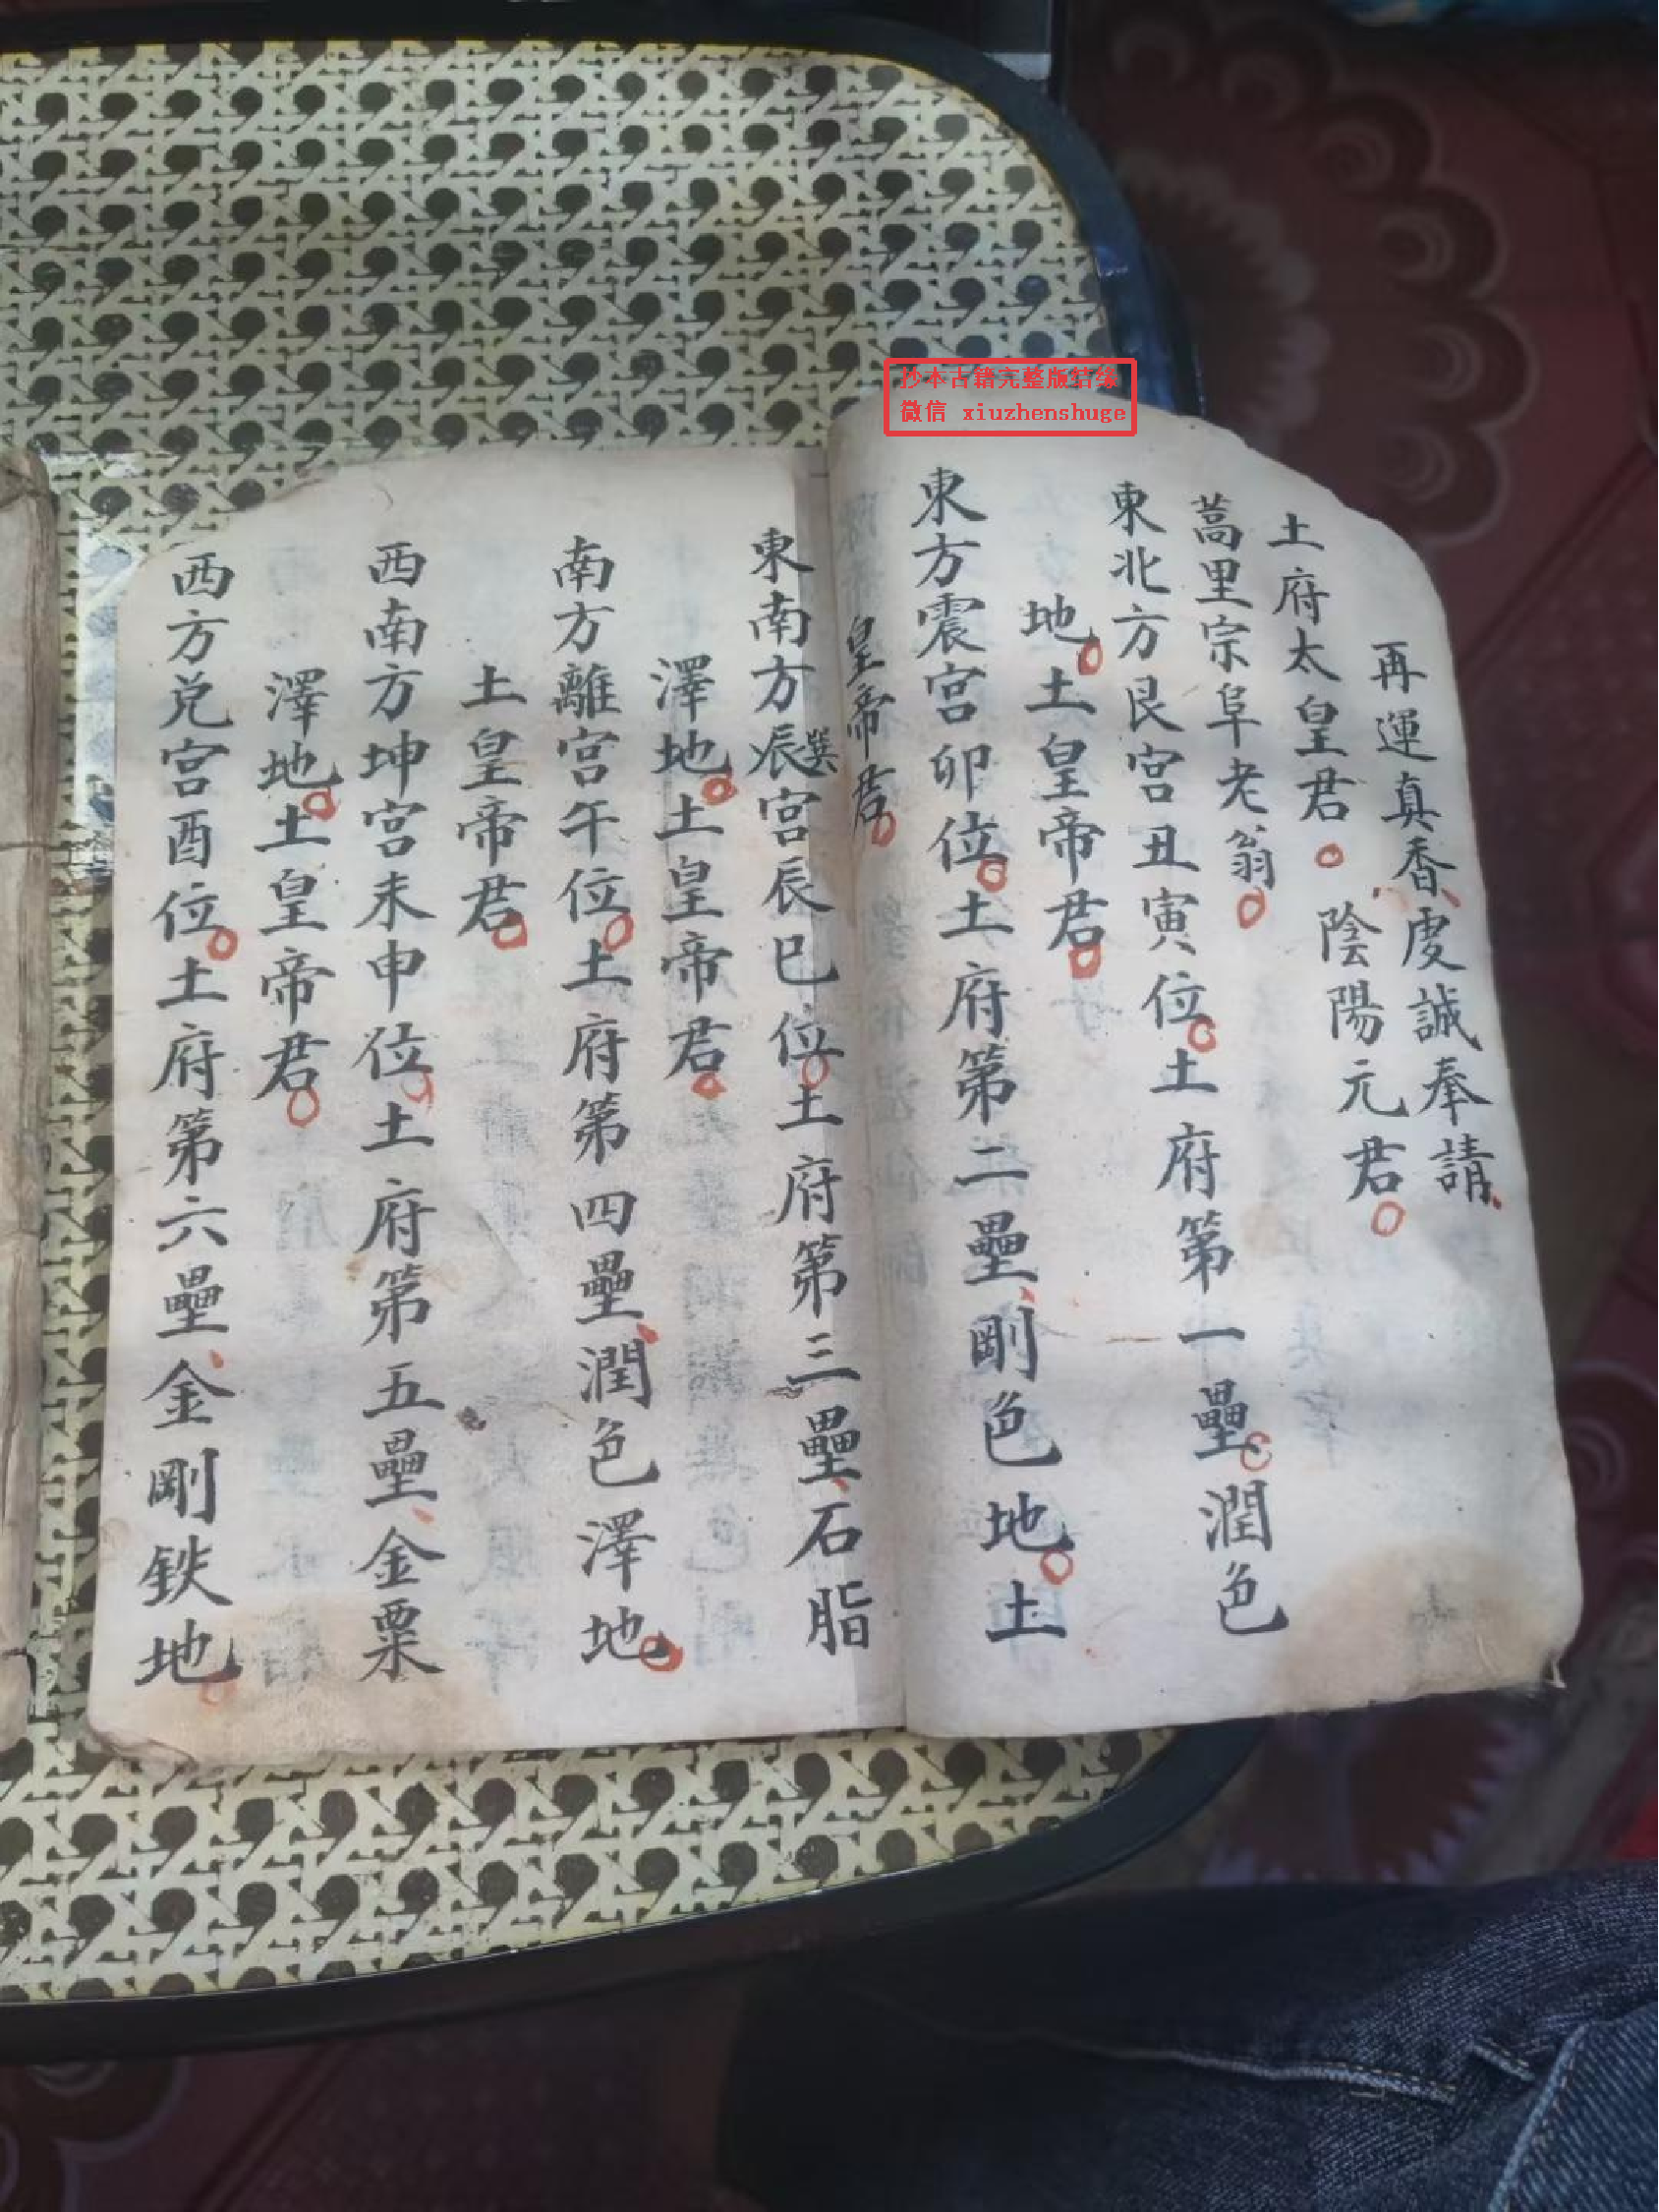 抄本古籍完整版结缘
微信 xiuzhenshuge
再運真香虔誠奉請
土府太皇君 陰陽元君
蒿里宗阜老翁
東北方艮宮丑寅位土府第一壘潤色
地土皇帝君
東方震宮卯位土府第二壘剛色地土
皇帝君
巽
東南方辰宮辰巳位土府第三壘石脂
澤地土皇帝君
南方離宮午位土府第四壘潤色澤地
土皇帝君
西南方坤宮未申位土府第五壘金粟
澤地土皇帝君
西方兑宮酉位土府第六壘金剛鉄地